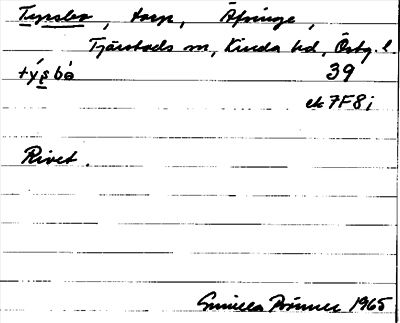 Tyrsbo, torp, Äpninge,
Tjärstads sn, Kinda hd, Östg. l.
týṣbò 39
ek 7F8i
Rivet.
Gunilla 1965